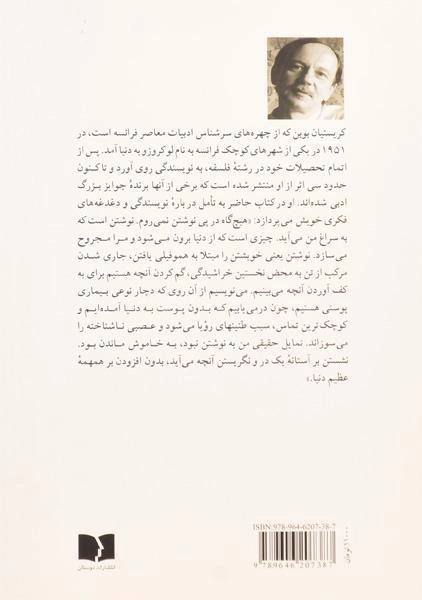 کریستیان بوبن که از چهره‌های سرشناس ادبیات معاصر فرانسه است، در
۱۹۵۱ در یکی از شهرهای کوچک فرانسه به نام لوکروزو به دنیا آمد. پس از
اتمام تحصیلات خود در رشتهٔ فلسفه، به نویسندگی روی آورد و تاکنون
حدود سی اثر از او منتشر شده است که برخی از آنها برندهٔ جوایز بزرگ
ادبی شده‌اند. او در کتاب حاضر به تأمل در بارهٔ نویسندگی و دغدغه‌های
فکری خویش می‌پردازد: «هیچ‌گاه در پی نوشتن نمی‌روم. نوشتن است که
به سراغ من می‌آید. چیزی است که از دنیا برون می‌شود و مرا مجروح
می‌سازد. نوشتن یعنی خویشتن را مبتلا به هموفیلی یافتن، جاری شدن
مرکب از تن به محض نخستین خراشیدگی، گم کردن آنچه هستیم برای به
کف آوردن آنچه می‌بینیم. می‌نویسیم از آن روی که دچار نوعی بیماری
پوستی هستیم، چون درمی‌یابیم که بدون پوست به دنیا آمده‌ایم و
کوچک‌ترین تماس، سبب طنینهای رؤیا می‌شود و عصبی ناشناخته را
می‌سوزاند. تمایل حقیقی من به نوشتن نبود، به خاموش ماندن بود.
نشستن بر آستانهٔ یک در و نگریستن آنچه می‌آید، بدون افزودن بر همهمهٔ
عظیم دنیا.»
ISBN: 978-964-6207-38-7
9 789646 207387
۱۹۰۰۰ تومان
انتشارات دوستان